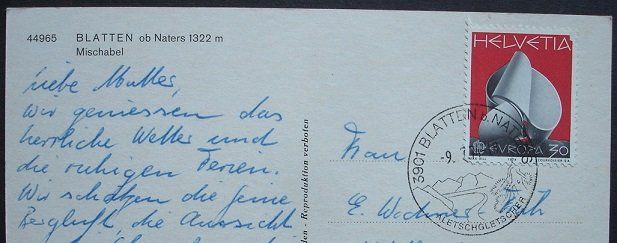 44965 BLATTEN ob Naters 1322 m
Mischabel
Liebe Mutter,
Wir geniessen das
herrliche Wetter und
die ruhigen Ferien.
Wir schätzen die feine
Bergluft, die Aussicht
den - Reproduktion verboten
HELVETIA
EUROPA 30
COURVOISIER S.A.
3901 BLATTEN B. NATERS
-9.
ALETSCHGLETSCHER
Frau
E.